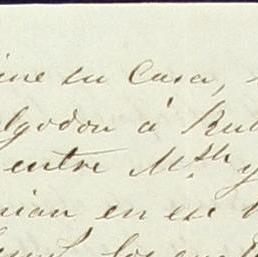 ine su Casa,
lgodon á Rub
entre M.sh y
nian en ex
los